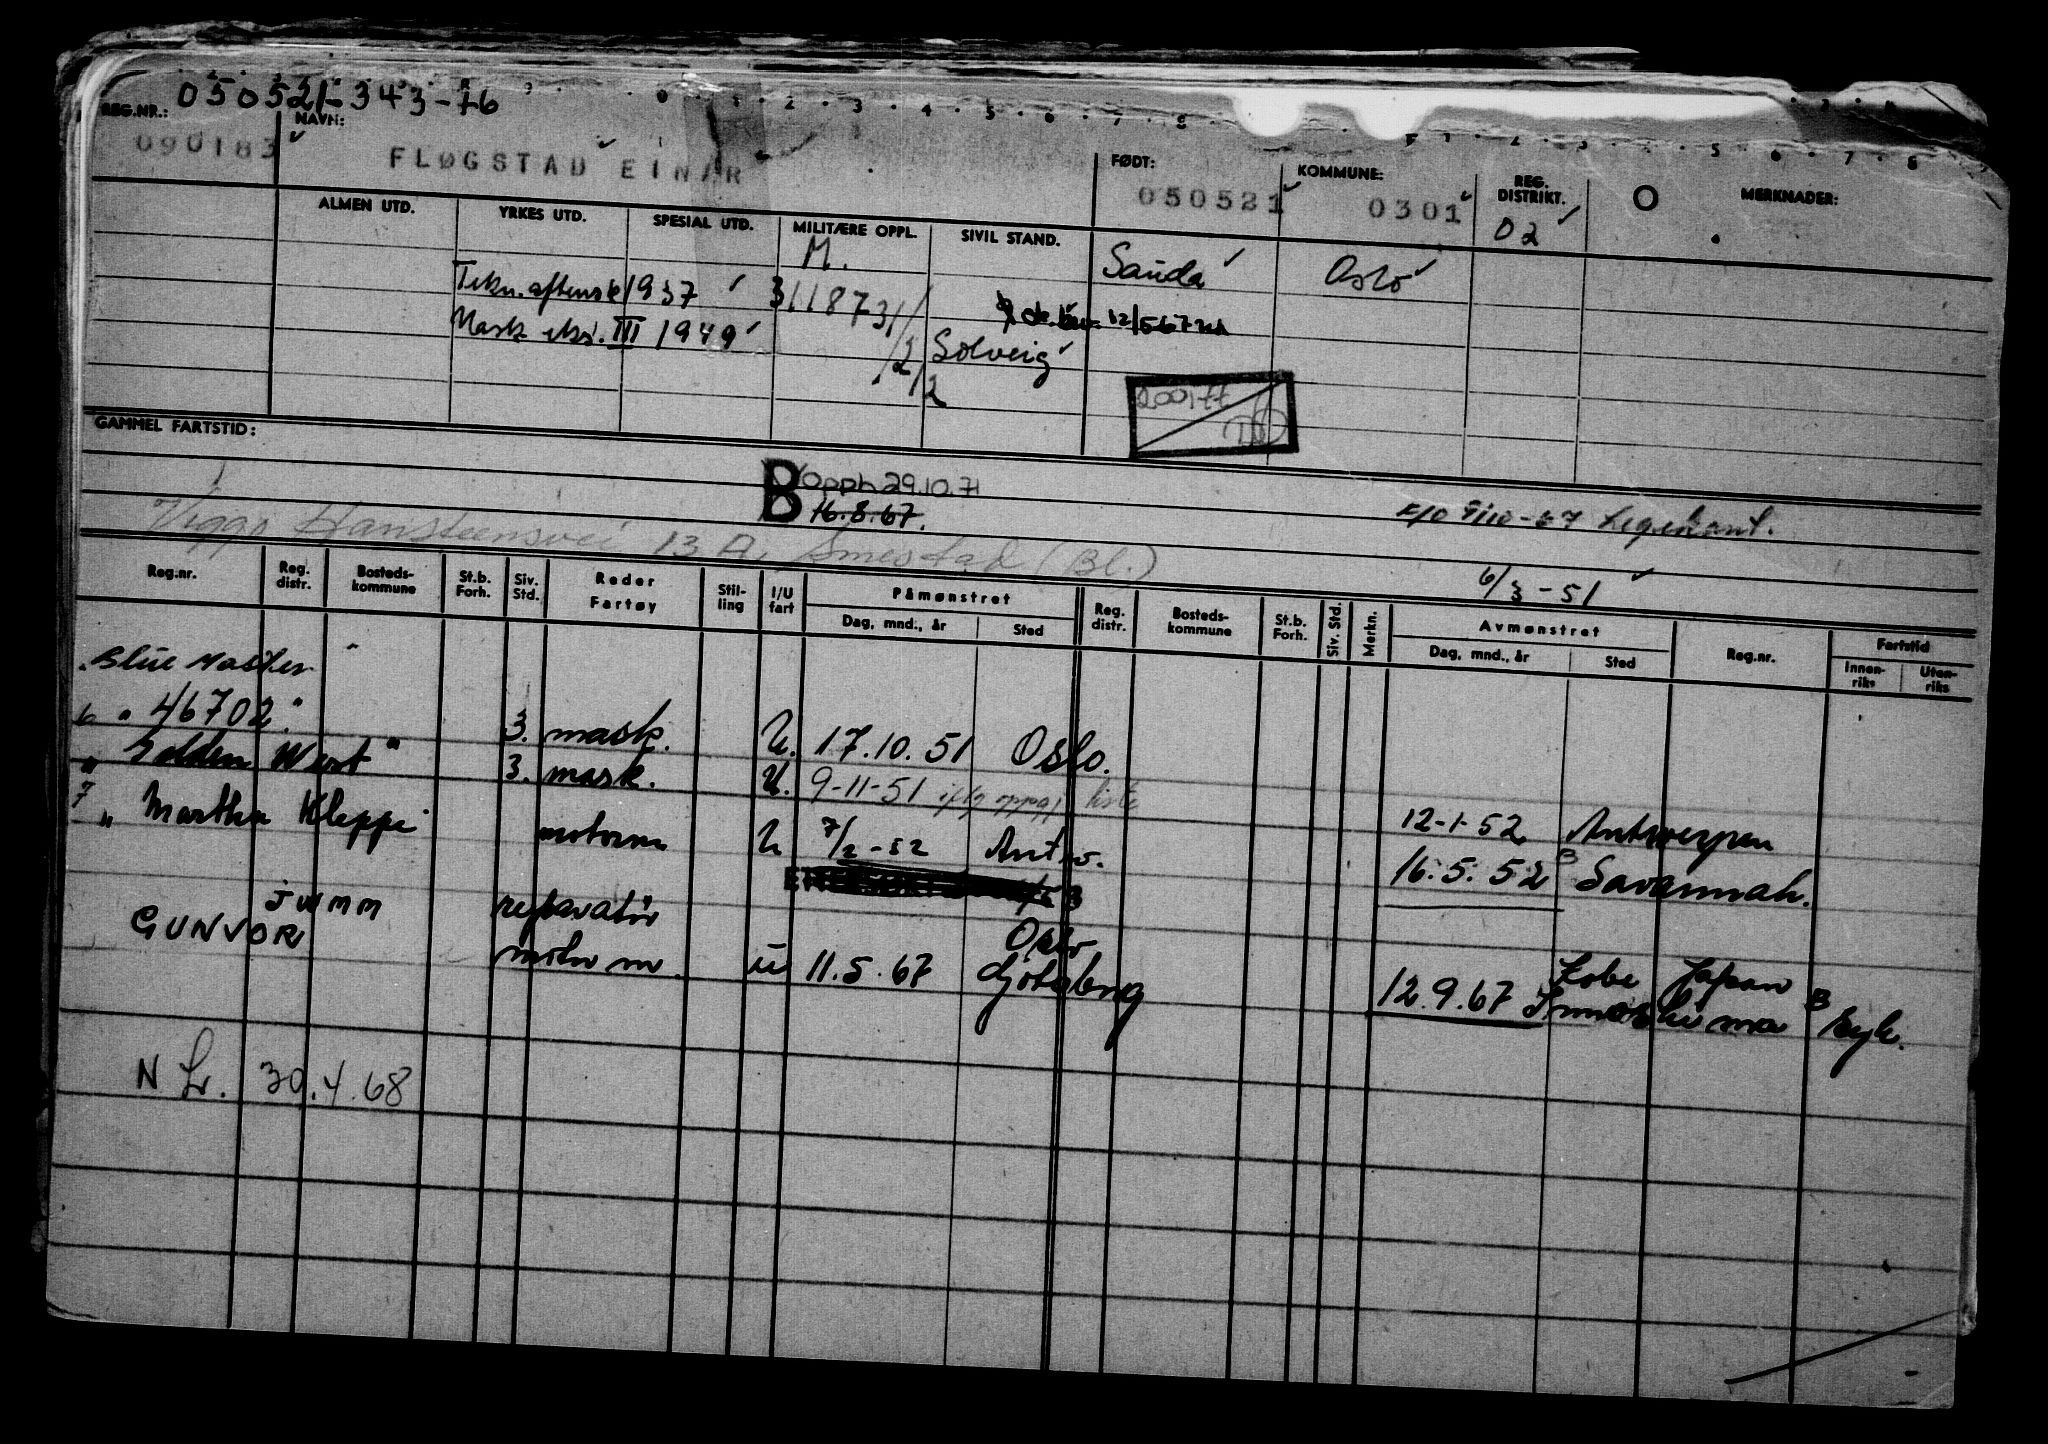 050521-343-76
REG.NR.: NAVN: FØDT: KOMMUNE: REG. DISTRIKT. MERKNADER:
090183 FLØGSTAD EINAR 050521 0301 02
ALMEN UTD. YRKES UTD. SPESIAL UTD. MILITÆRE OPPL. SIVIL STAND.
M. Sauda Oslo
Tekn. aftensk 1937 311873
Mask eks. III 1949 Solveig
200177
GAMMEL FARTSTID:
B Opph 29.10.71
16.8.67.
Viggo Hansteensvei 13 A, Smestad (Bl.)
6/3-51
Reg.nr. Reg. distr. Bosteds-kommune St.b. Forh. Siv. Std. Reder Fartøy Stil-ling I/U fart Påmønstret Reg. distr. Bosteds-kommune St.b. Forh. Siv. Std. Merkn. Avmønstret Reg.nr. Fartstid
Dag, mnd., år Sted Dag, mnd., år Sted Innen-riks Uten-riks
"Blue Master"
"46702" 3. mask. U. 17.10.51 Oslo.
"Golden West" 3. mask. U. 9-11-51 liste 12-1-52 Antwerpen
"Martha Kleppe" motorm U 7/2-52 Antw. 16.5.52 Savannah.
JWMM reparatør Oslo Kobe Japan
GUNVOR motorm. u 11.5.67 Gøteborg 12.9.67 Innoshima syk.
N Lv. 30.4.68